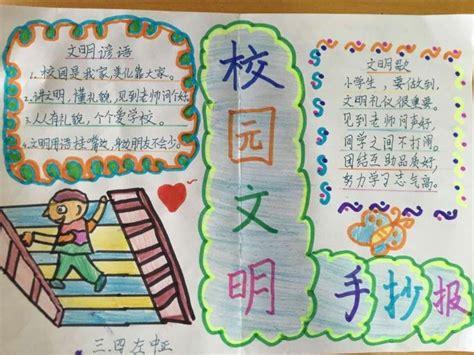 文明谚语
1.校园是我家,美化靠大家。
2.讲文明,懂礼貌,见到老师问个好。
3.人人有礼貌,个个爱学校。
4.文明用语挂嘴边,身边朋友不会少。
校园文明
手抄报
文明歌
小学生,要做到,
文明礼仪很重要。
见到老师问声好,
同学之间不打闹。
团结互助品质好,
努力学习志气高。
三.四 左中正